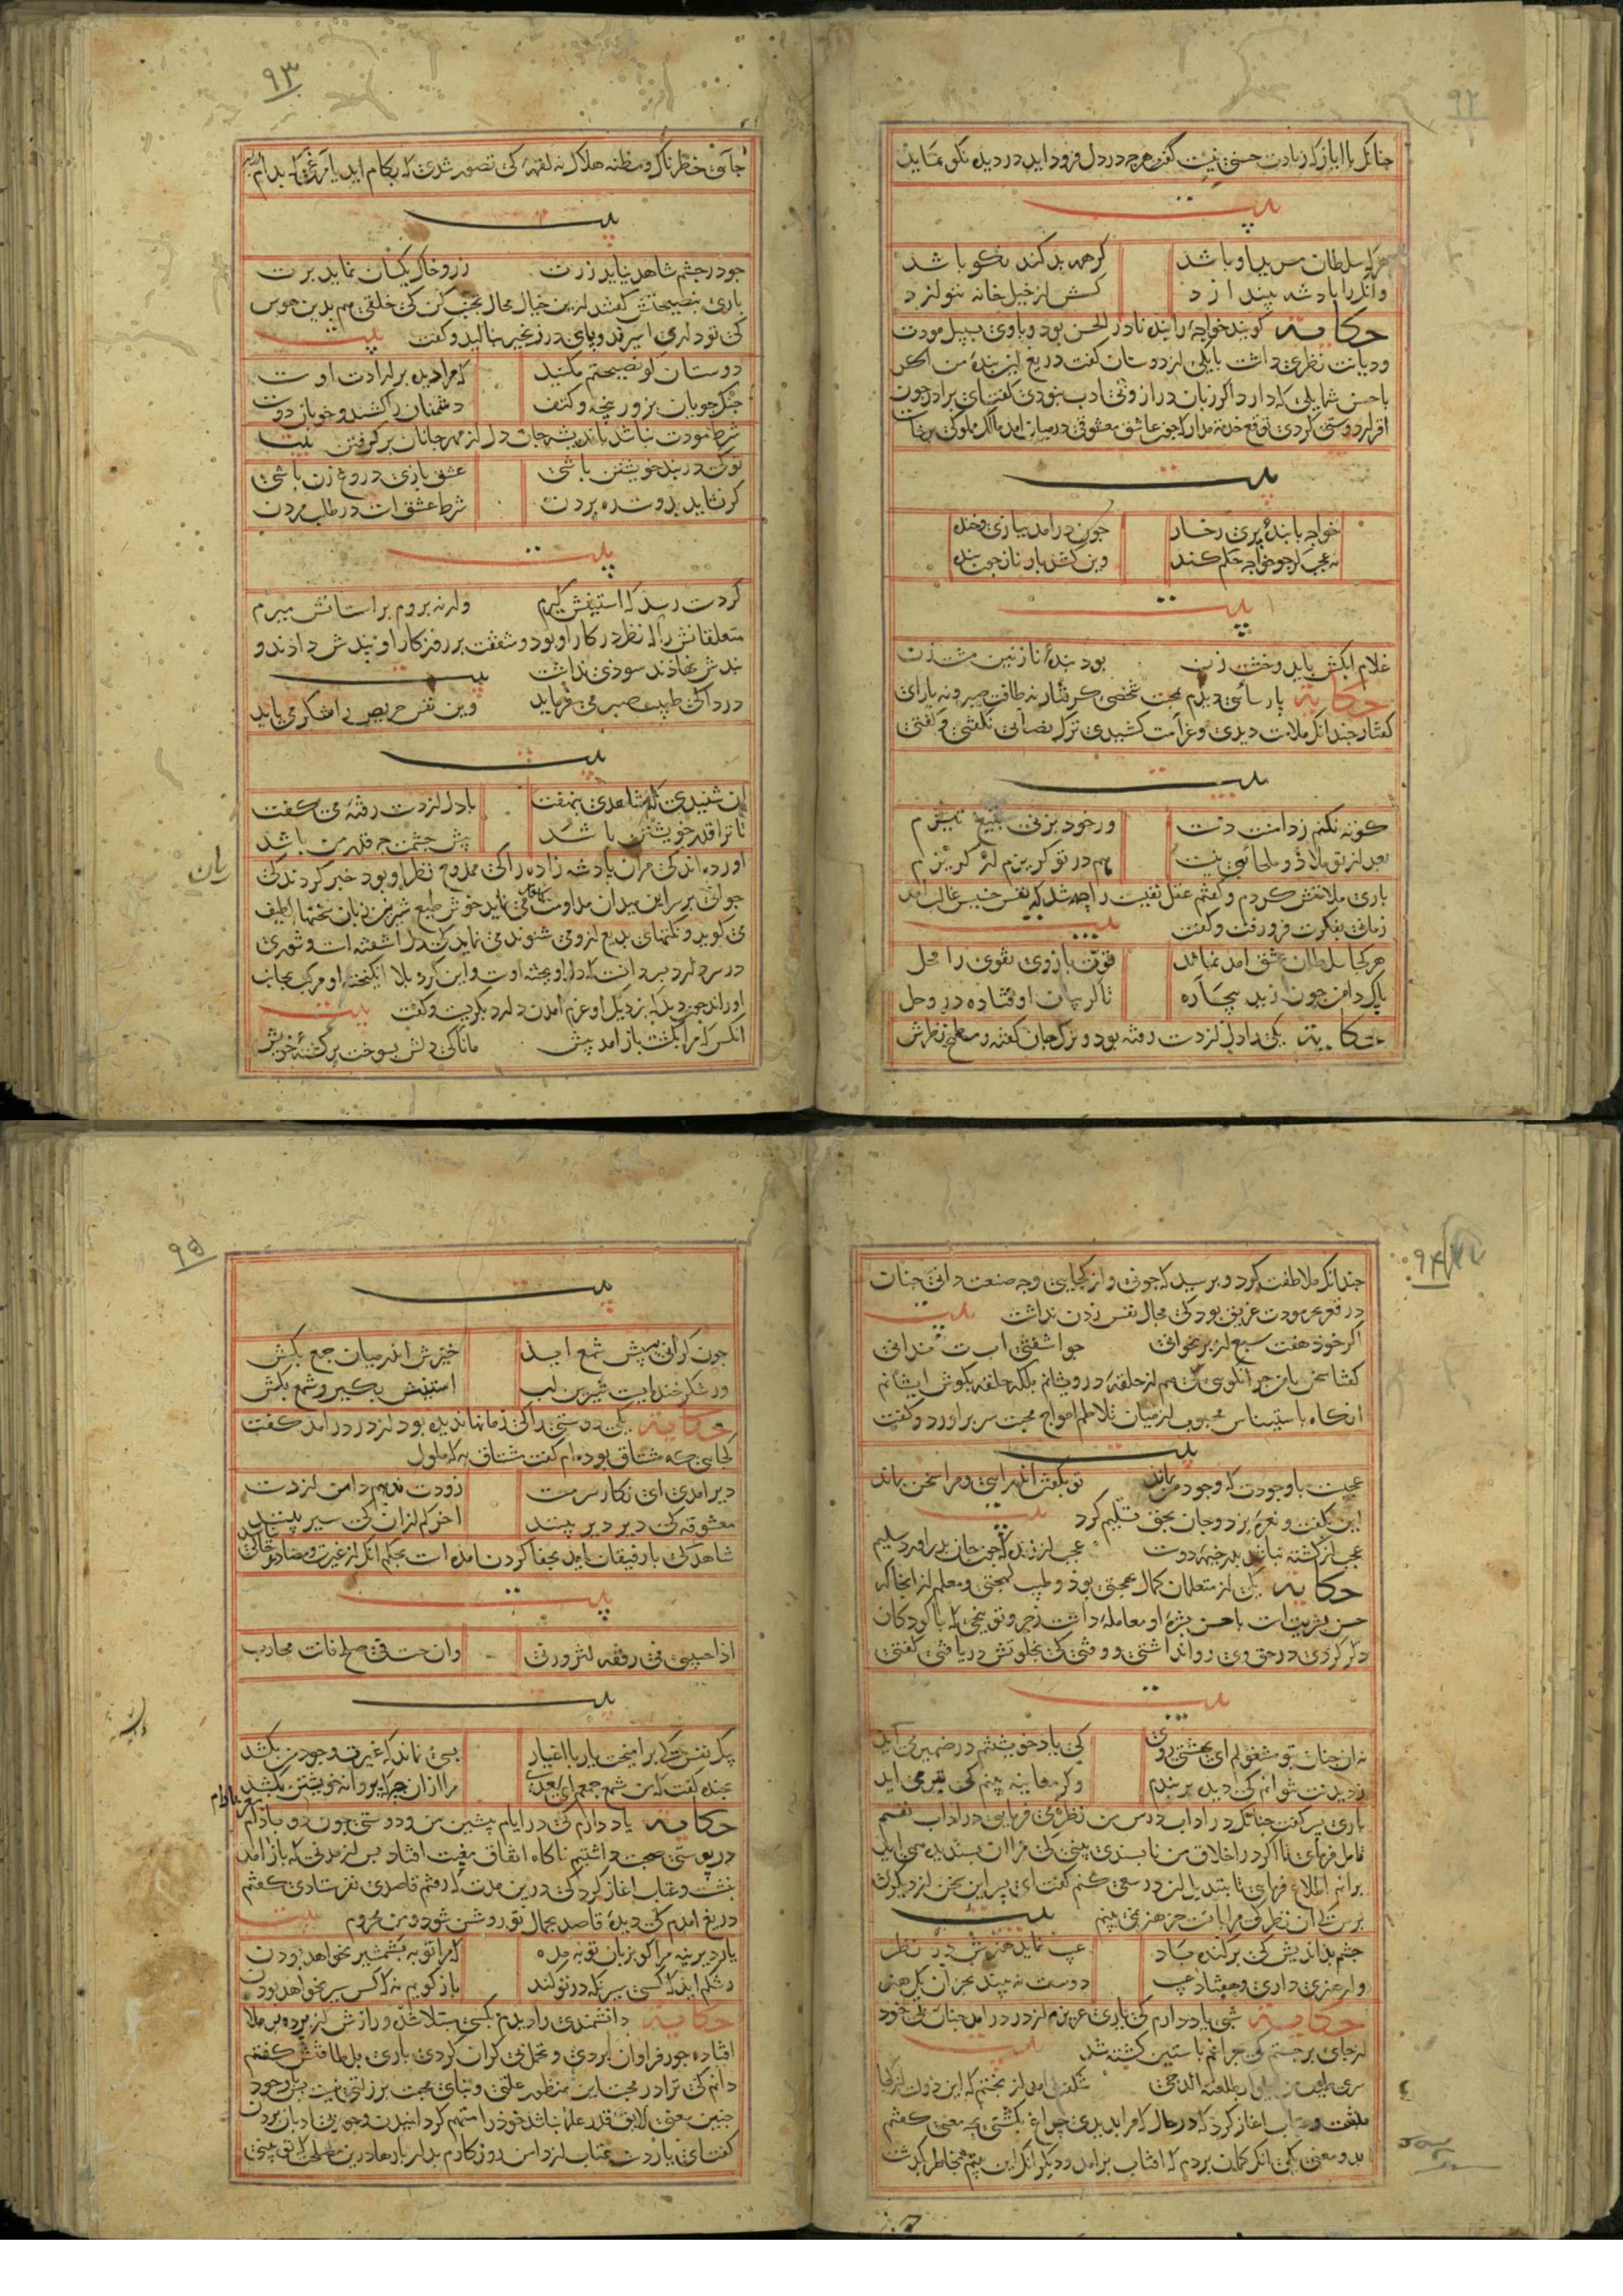 ٩٢
چنانکه با ایاز که زیادت حسنی نیست گفت هرچ در دل فرود اید در دیده نکو نماید
بیت
هرکه سلطان مرید او باشد
گر همه بد کند نکو باشد
وانکرا پادشه بیندازد
کسش از خیل خانه ننوازد
حکایة گویند خواجهٔ را بنده نادر الحسن بود و باوی بسبیل مودت
ودیانت نظری داشت با یکی از دوستان گفت دریغ این بندهٔ من اگر
با حسن شمایلی که دارد اگر زبان دراز و بی ادب نبودی گفت ای برادر چون
اقرار دوستی کردی توقع خدمت مدار که چون عاشق معشوقی درمیان امد مالک مملوکی برخاست
بیت
خواجه با بندهٔ پری رخسار
چون درامد ببازی و خنده
نه عجب کو چو خواجه حکم کند
وین کشد بار ناز چون بنده
بیت
غلام ابکش باید و خشت زن
بود بندهٔ نازنین مشت زن
حکایة پارسائی دیدم بمحبت شخصی گرفتار نه طاقت صبر و نه یارای
گفتار چندانک ملامت دیدی و غرامت کشیدی ترک تصابی نگفتی و گفتی
بیت
کوته نکنم ز دامنت دست
ور خود بزنی بتیغ تیزم
بعد از تو ملاذ و ملجائی نیست
هم در تو گریزم ار گریزم
باری ملامتش کردم و گفتم عقل نفیست را چه شد که نفس خسیس غالب امد
زمانی بفکرت فرو رفت و گفت بیت
هر کجا سلطان عشق امد نماند
قوت بازوی تقوی را محل
پاک دامن چون زید بیچاره
تا گریبان اوفتاده در وحل
حکایة یکی را دل از دست رفته بود و ترک جان گفته و مطمح نظرش
٩٣
جائی خطرناک و مظنه هلاک نه لقمهٔ کی تصور شدی که بکام اید یا مرغی که بدام
بیت
چو در چشم شاهد نیاید زرت
زر و خاک یکسان نماید برت
باری بنصیحتش گفتند ازین خیال محال تجنب کن کی خلقی هم بدین هوس
کی تو داری اسیرند و پای در زنجیر بنالید و گفت بیت
دوستان گو نصیحتم مکنید
که مرا دیده بر ارادت اوست
جنگجویان بزور پنجه و کتف
دشمنان را کشند و خوبان دوست
شرط مودت نباشد باندیشه جان دل از مهر جانان برگرفتن بیت
تو که در بند خویشتن باشی
عشق بازی دروغ زن باشی
گر نشاید بدوست ره بردن
شرط عشق است در طلب مردن
بیت
گر دست رسد که استینش گیرم
ور نه بروم بر استانش میرم
متعلقانش را که نظر در کار او بود و شفقت بر روزگار او پندش دادند و
بندش نهادند سودی نداشت بیت
دردا کی طبیب صبر می فرماید
وین نفس حریص را شکر می باید
بیت
ان شنیدی که شاهدی بنهفت
با دل از دست رفتهٔ می گفت
تا ترا قدر خویشتن باشد
پیش چشمت چه قدر من باشد
اورده اند کی مران پادشه زاده را کی ممدوح نظر او بود خبر کردند کی
جوانی بر سر این میدان مداومت می نماید خوش طبع شیرین زبان سخنها لطیف
می گوید و نکتهای بدیع ازو می شنوند می نماید که دل اشفته است و شوری
در سر دارد پسر دانست که دل اویخته اوست و این گرد بلا انگیخته او مرکب بجانب
او راند چون دید که بنزدیک او عزم امدن دارد بگریست و گفت بیت
انکس که مرا بکشت باز امد پیش
مانا کی دلش بسوخت بر کشتهٔ خویش
٩٤
چندانک ملاطفت کرد و پرسید که چونی و از کجایی و چه صنعت دانی چنان
در قعر بحر مودت غریق بود کی مجال نفس زدن نداشت بیت
اگر خود هفت سبع از بر بخوانی
چو اشفتی ا ب ت ندانی
گفتا سخن با من چرا نگویی که هم از حلقهٔ درویشانم بلکه حلقه بگوش ایشانم
انگاه باستیناس محبوب از میان تلاطم امواج محبت سر براورد و گفت
بیت
عجبست با وجودت که وجود من بماند
تو بگفتن اندر ایی و مرا سخن بماند
این بگفت و نعرهٔ بزد و جان بحق تسلیم کرد بیت
عجب از کشته نباشد بدر خیمهٔ دوست
عجب از زنده که چون جان بدر اورد سلیم
حکایة یکی از متعلمان کمال بهجتی بود و طیب لهجتی و معلم از انجا که
حس بشریت است با حسن بشرهٔ او معاملهٔ داشت زجر و توبیخی که با کودکان
دگر کردی در حق وی روا نداشتی و وقتی کی بخلوتش دریافتی گفتی
بیت
نه انچنان بتو مشغولم ای بهشتی روی
کی یاد خویشتنم در ضمیر می اید
ز دیدنت نتوانم کی دیده بر بندم
و گر معاینه بینم کی تیر می اید
باری پسر گفت چنانک در اداب درس من نظری می فرمایی در اداب نفسم
تامل فرمای تا اگر در اخلاق من ناپسندی بینی کی مرا ان پسندیده می اید
برانم اطلاع فرمایی تا بتبدیل ان در سعی کنم گفت ای پسر این سخن از دیگری
پرس کی ان نظر کی مرا با تست جز هنر نمی بینم بیت
چشم بداندیش کی برکنده باد
عیب نماید هنرش در نظر
ور هنری داری و هفتاد عیب
دوست نه بیند بجز ان یک هنر
حکایة شبی یاد دارم کی یاری عزیزم از در درامد چنان بی خود
از جای برجستم کی چراغم باستین کشته شد بیت
سری طیف من یجلو بطلعته الدجی
شگفت امد از بختم که این دولت از کجا
بنشست و عتاب اغاز کرد که در حال که مرا بدیدی چراغ بکشتی بچه معنی گفتم
بدو معنی یکی انک گمان بردم که افتاب برامد و دیگر انک این بیتم بخاطر گذشت
٩٥
بیت
چون گرانی به پیش شمع اید
خیزش اندر میان جمع بکش
ور شکر خنده ایست شیرین لب
استینش بگیر و شمع بکش
حکایة یکی دوستی را کی زمانها ندیده بود از در درامد گفت
کجایی کی مشتاق بوده ام گفت مشتاق به که ملول
دیر امدی ای نگار سرمست
زودت ندهم دامن از دست
معشوقه کی دیر دیر بینند
اخر کم ازان کی سیر بینند
شاهد کی با رفیقان اید بجفا کردن امده است بحکم انک از غیرت و مضادت خالی نباشد
بیت
اذا جئتنی فی رفقة لتزورنی
وان جئت فی صلح فانت محارب
بیت
یک نفس کی برامیخت یار با اغیار
بسی نماند که غیرت وجود من بکشد
بخنده گفت که من شمع جمعم ای سعدی
مرا ازان چه که پروانه خویشتن بکشد
حکایة یاد دارم کی در ایام پیشین من و دوستی چون دو بادام مغز
در پوستی صحبت داشتیم ناگاه اتفاق مغیب افتاد پس از مدتی که باز امد
بنشست و عتاب اغاز کرد کی درین مدت که رفتم قاصدی نفرستادی گفتم
دریغ امدم کی دیدهٔ قاصد بجمال تو روشن شود و من محروم بیت
یار دیرینه مرا گو بزبان توبه مده
که مرا توبه بشمشیر نخواهد بودن
رشکم اید که کسی سیر نگه در تو کند
باز گویم نه که کس سیر نخواهد بودن
حکایة دانشمندی را دیدم بکسی مبتلا شده و رازش از پرده بر ملا
افتاده جور فراوان بردی و تحمل بی کران کردی باری بلطافتش گفتم
دانم کی ترا در محبت این منظور علتی و بنای محبت بر زلتی نیست پس وجود
چنین معنی لایق قدر علما نباشد خود را متهم گردانیدن و جور بی ادبان بردن
گفت ای یار دست عتاب از دامن روزگارم بدار بارها درین مصلحت که تو بینی